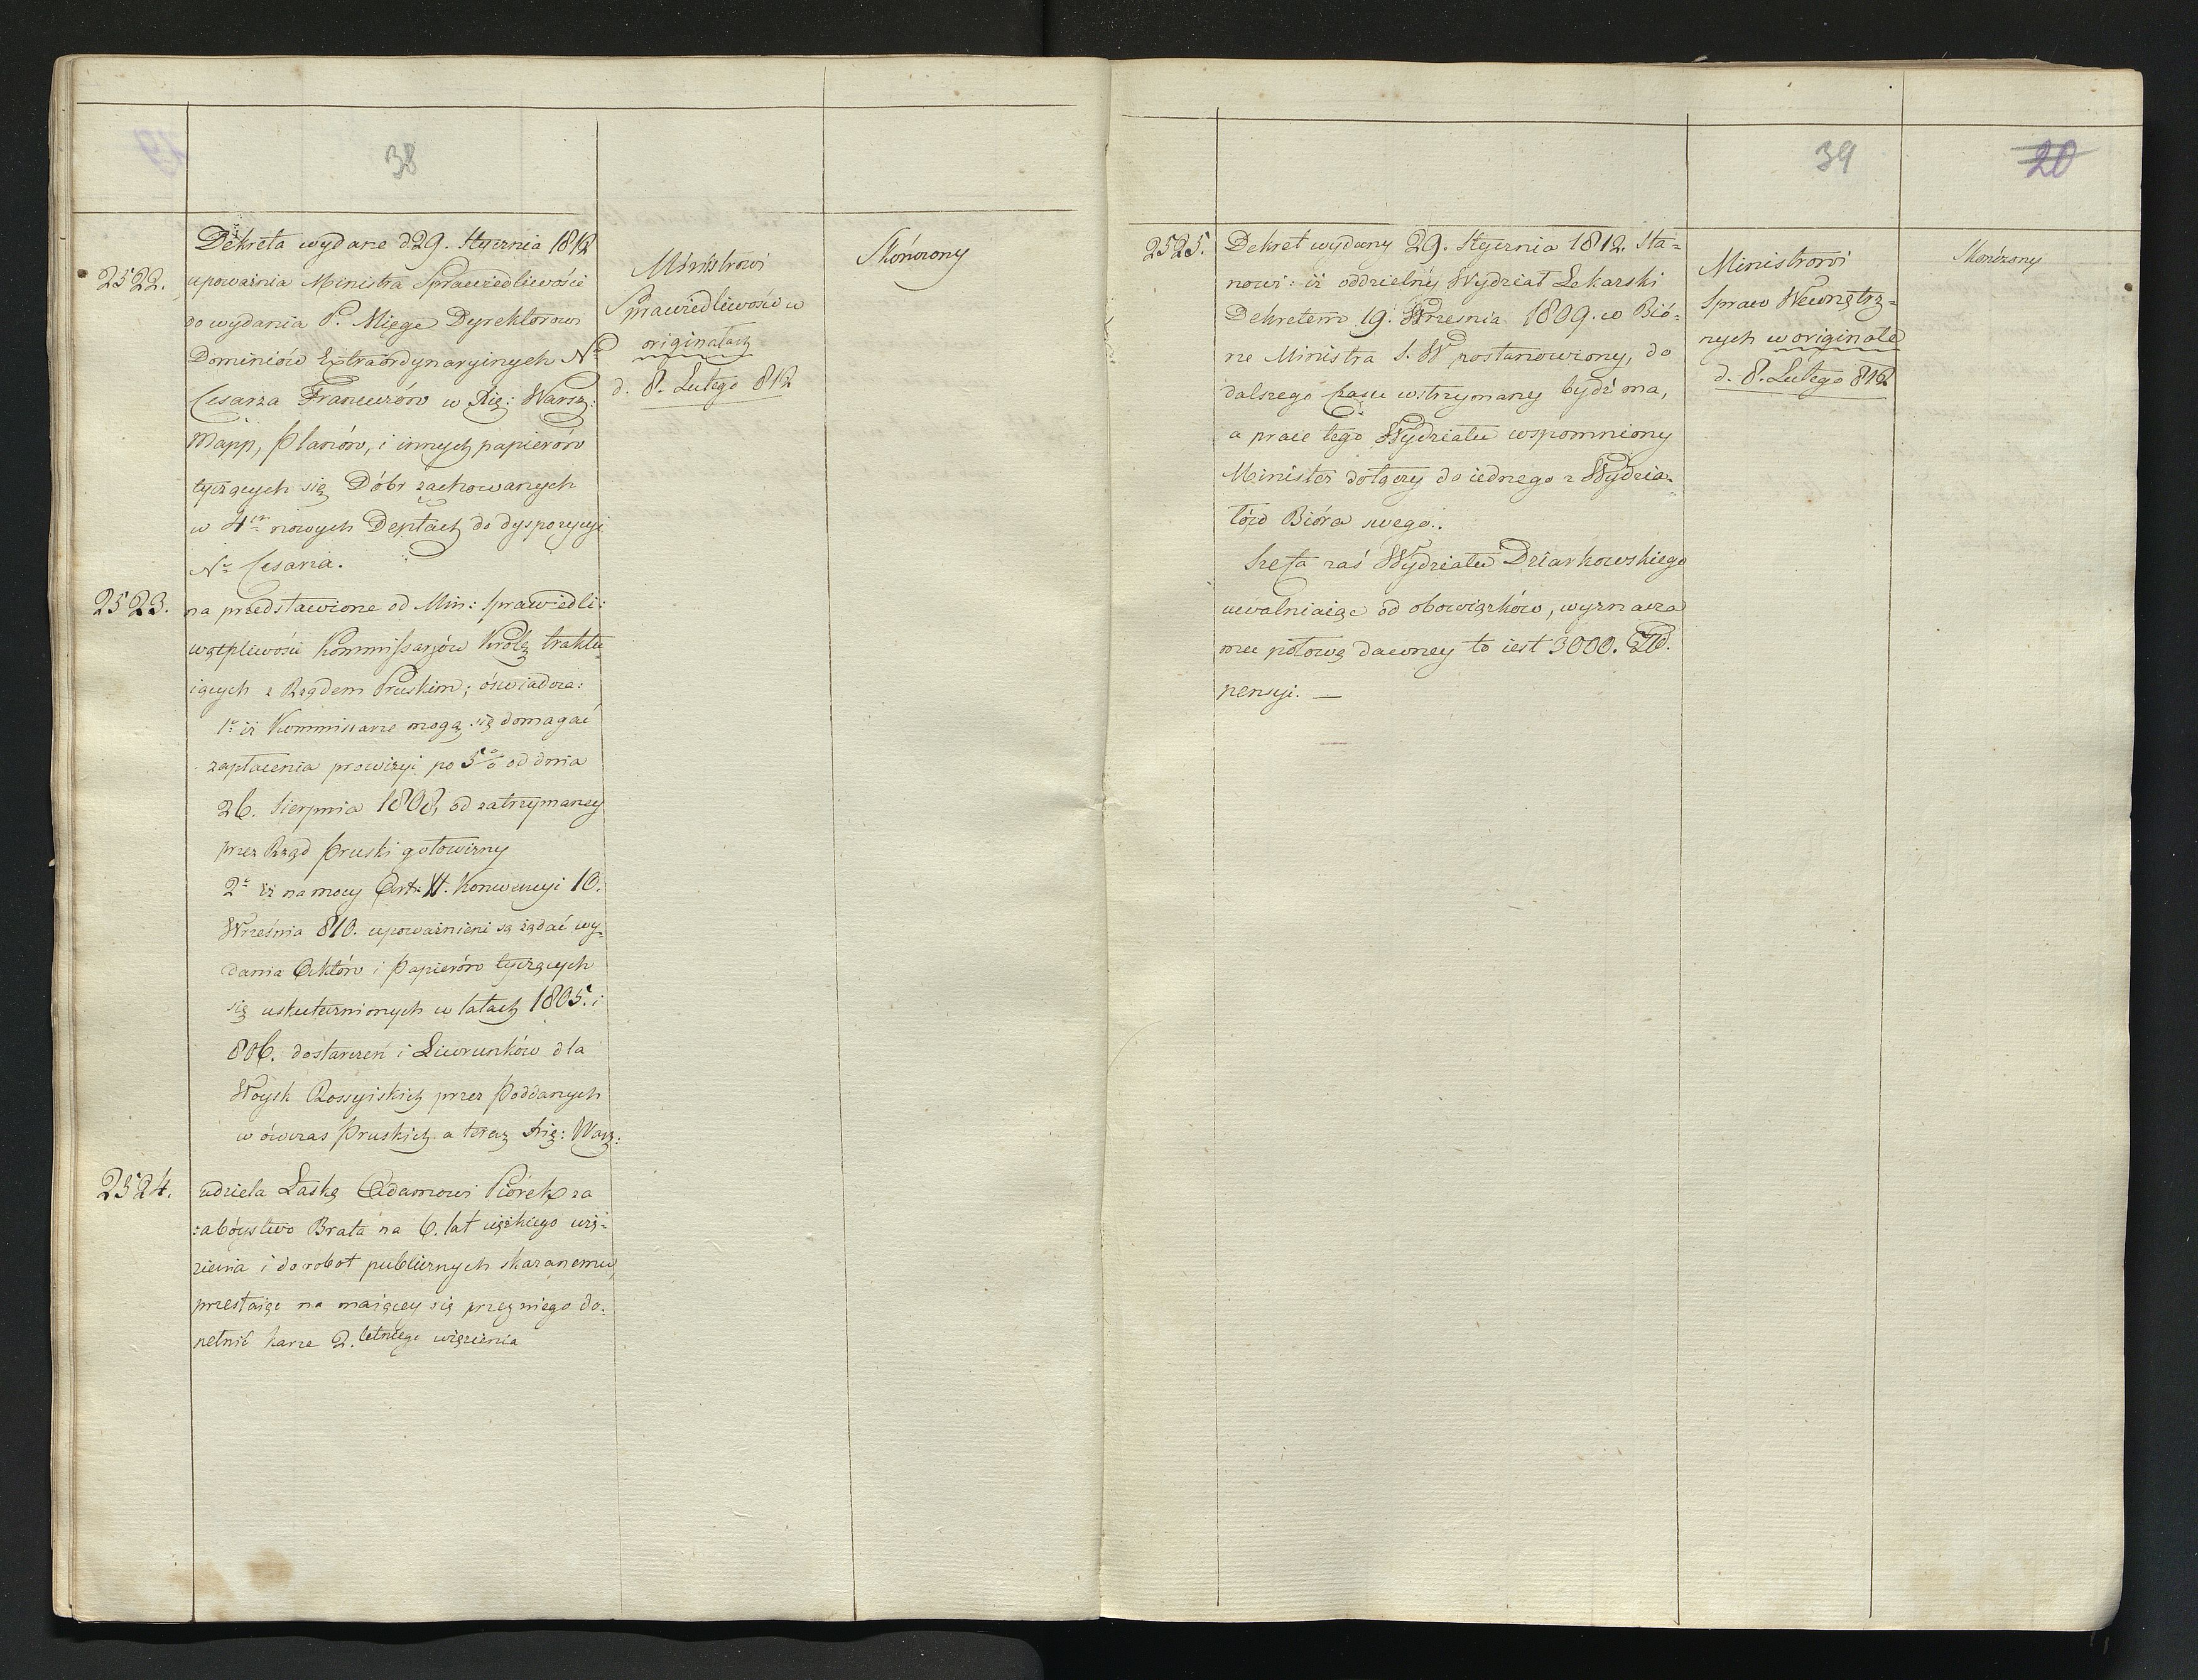 38
Dekreta wydane d. 29. Stycznia 1812
2522.
upoważnia Ministra Sprawiedliwości
do wydania P. Miege Dyrektorowi
Dominiów Extraordynaryinych Nº
Cesarza Francuzów w Xię: Warsz:
Mapp, Planów, i innych papierów
tyczących się Dóbr zachowanych
w 4ch nowych Deptach do dyspozycyi
Nº Cesarza.
2523.
na przedstawione od Min: Sprawiedli:
wątpliwości Kommissarzów Królz traktu
iących z Rządem Pruskim; oświadcza:
1º iż Kommissarze mogą się domagać
zapłacenia prowizyi po 5% od dnia
26. Sierpnia 1808, od zatrzymaney
przez Rząd Pruski gotowizny
2º iż na mocy Art: Konwencyi 10.
Września 810. upoważnieni są żądać wy-
dania Aktów i Papierów tyczących
się uskutecznionych w latach 1805. i
806. dostarczeń i Liwrunków dla
Woysk Rossyiskich przez Poddanych
w ówczas Pruskich a teraz Xię: Warz:
2524.
udziela Łaskę Adamowi Piórek za
zabóystwo Brata na 6. lat ciężkiego wię-
zienia i do robot publicznych skazanemu,
przestaiąc na maiącey się przez niego do-
pełnić karze 2. letniego więzienia
Ministrowi
Sprawiedliwości w
originałach
d. 8. Lutego 812
Skończony
39
20
2525.
Dekret wydany 29. Stycznia 1812 sta-
nowi: iż oddzielny Wydział Lekarski
Dekretem 19. Września 1809. w Bió-
rze Ministra S. W postanowiony, do
dalszego Czasu wstrzymany bydź ma,
a prace tego Wydziału wspomniony
Minister dołączy do iednego z Wydzia-
łów Bióra swego.
Szefa zaś Wydziału Dziarkowskiego
uwalniaiąc od obowiązków, wyznacza
mu połowę dawney to iest 3000. Złł.
pensyi. —
Ministrowi
Spraw Wewnętrz-
nych w originale
d. 8. Lutego 812
Skończony